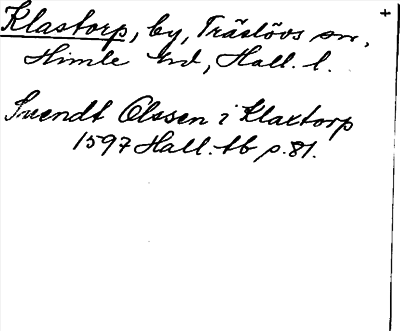 Klastorp, by, Träslövs sn, +
Himle hrd, Hall. l.
Svendt Olssen i Klaxtorp
1597 Hall. tb s. 81.